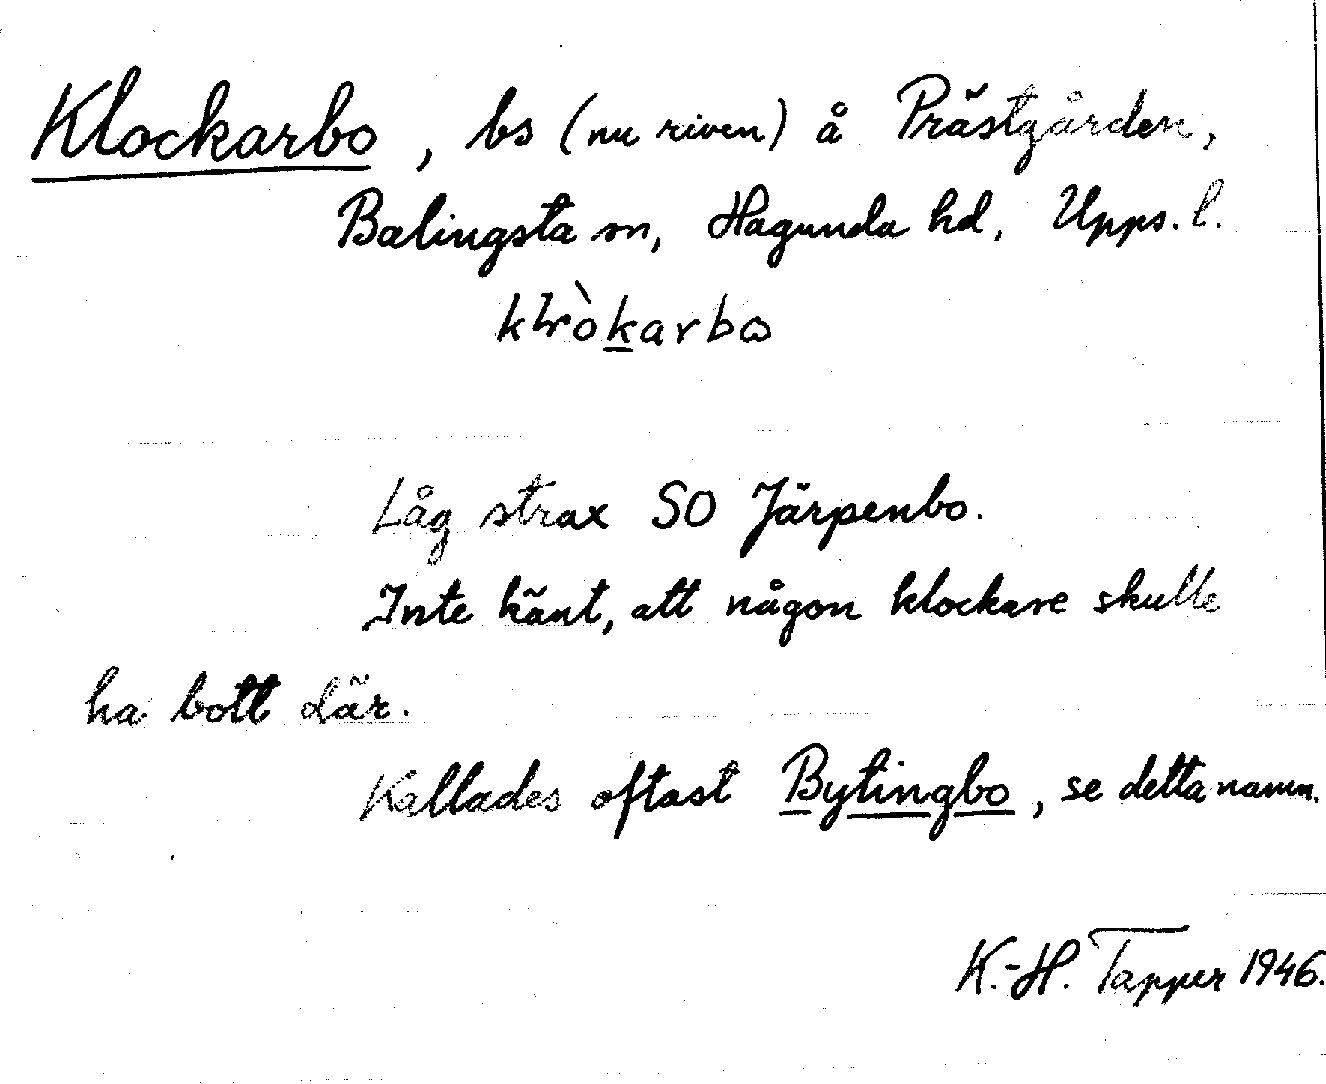 Klockarbo, bs (nu riven) å Prästgården,
Balingsta sn, Hagunda hd, Upps. l.
Låg strax SO Järpenbo.
Inte känt, att någon klockare skulle
ha bott där.
Kallades oftast Bytingbo, se detta namn.
K.-H. Tapper 1946.